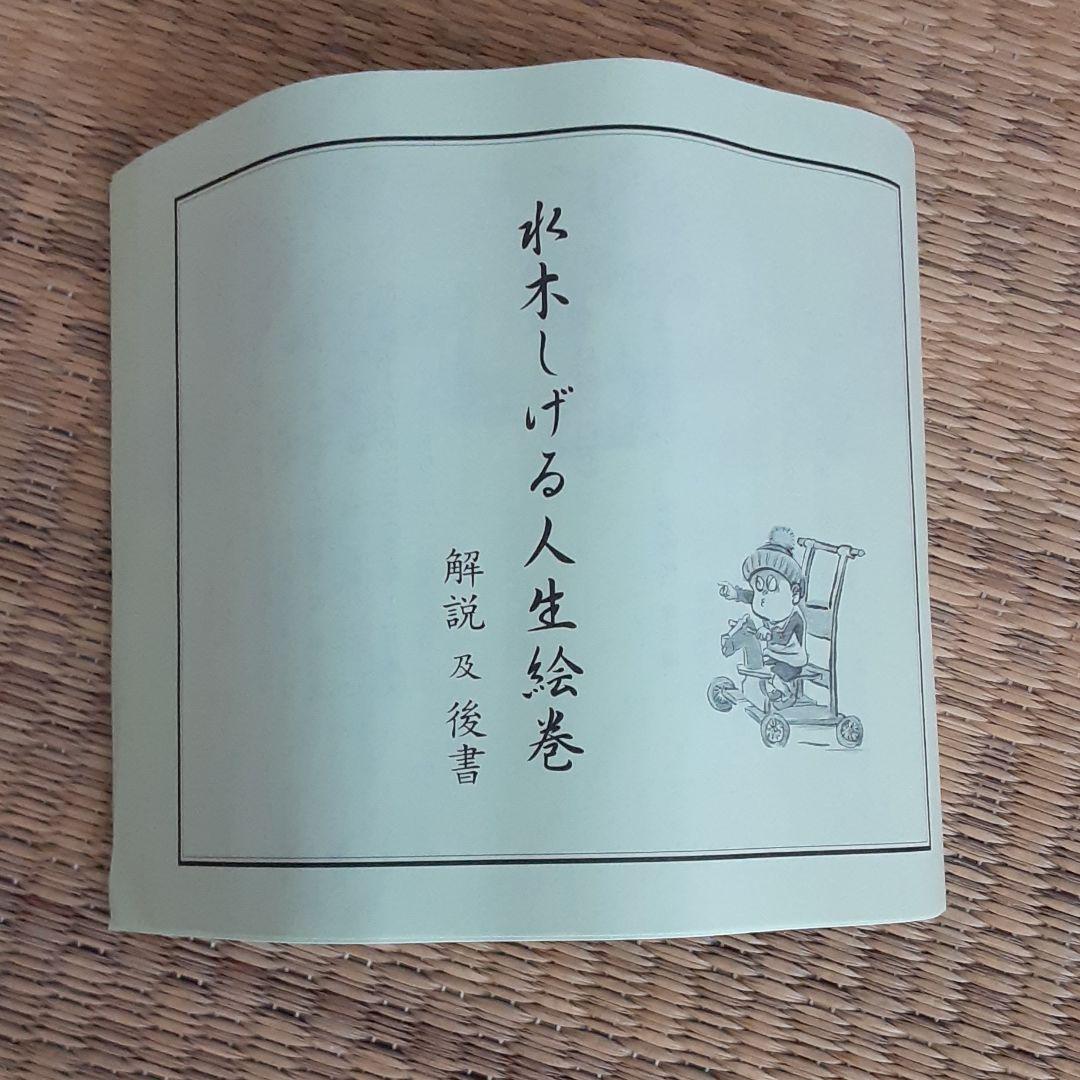 水木しげる人生絵巻
解説及後書